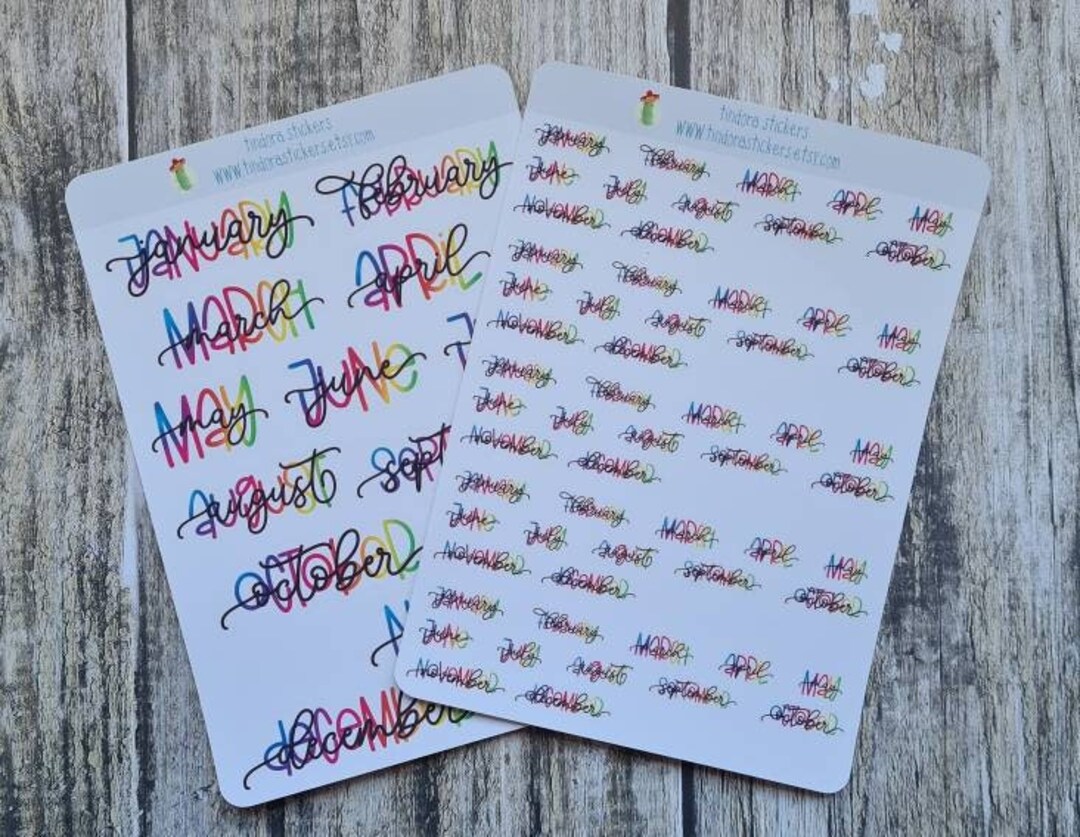 tindora stickers
www.tindorastickers.etsy.com
january february
march april
may june
august sept
october
december
tindora stickers
www.tindorastickers.etsy.com
january february march april may
june july august september october
november december
january february march april may
june july august september october
november december
january february march april may
june july august september october
november december
january february march april may
june july august september october
november december
january february march april may
june july august september october
november december